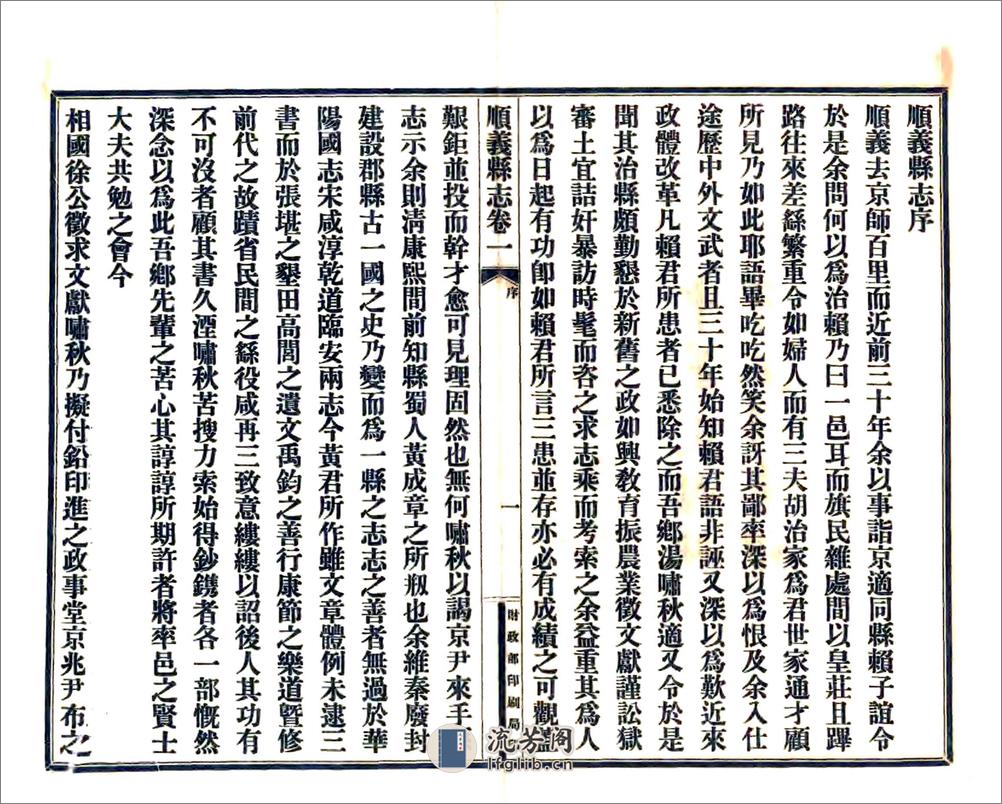 順義縣志序
順義去京師百里而近前三十年余以事詣京適同縣賴子誼令
於是余問何以爲治賴乃曰一邑耳而旗民雜處間以皇莊且蹕
路往來差繇繁重令如婦人而有三夫胡治家爲君世家通才顧
所見乃如此耶語畢吃吃然笑余訝其鄙率深以爲恨及余入仕
途歷中外文武者且三十年始知賴君語非誣又深以爲歎近來
政體改革凡賴君所患者已悉除之而吾鄉湯嘯秋適又令於是
聞其治縣頗勤懇於新舊之政如興敎育振農業徵文獻謹訟獄
審土宜詰奸暴訪時髦而咨之求志乘而考索之余益重其爲人
以爲日起有功卽如賴君所言三患並存亦必有成績之可觀
順義縣志卷一
序
一
財政部印刷局
艱鉅並投而幹才愈可見理固然也無何嘯秋以謁京尹來手一
志示余則淸康熙間前知縣蜀人黃成章之所剏也余維秦廢封
建設郡縣古一國之史乃變而爲一縣之志志之善者無過於華
陽國志宋咸淳乾道臨安兩志今黃君所作雖文章體例未逮三
書而於張堪之墾田高閭之遺文禹鈞之善行康節之樂道曁修
前代之故蹟省民間之繇役咸再三致意縷縷以詔後人其功有
不可沒者顧其書久湮嘯秋苦搜力索始得鈔鐫者各一部慨然
深念以爲此吾鄉先輩之苦心其諄諄所期許者將率邑之賢士
大夫共勉之會今
相國徐公徵求文獻嘯秋乃擬付鉛印進之政事堂京兆尹布之
流芳閣
lfglib.cn